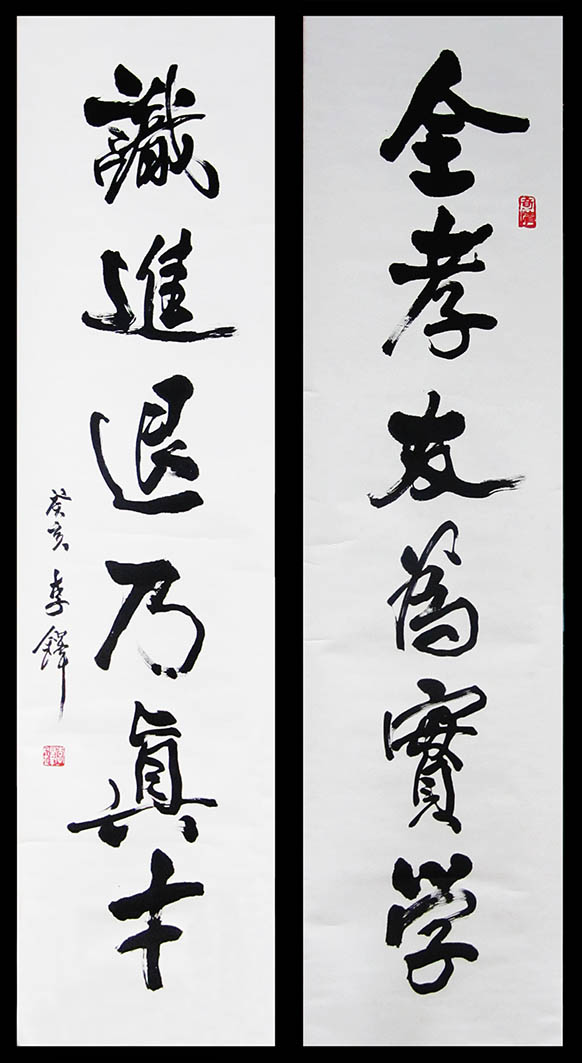 全孝友為實學
識進退乃真才
癸亥 李鐸